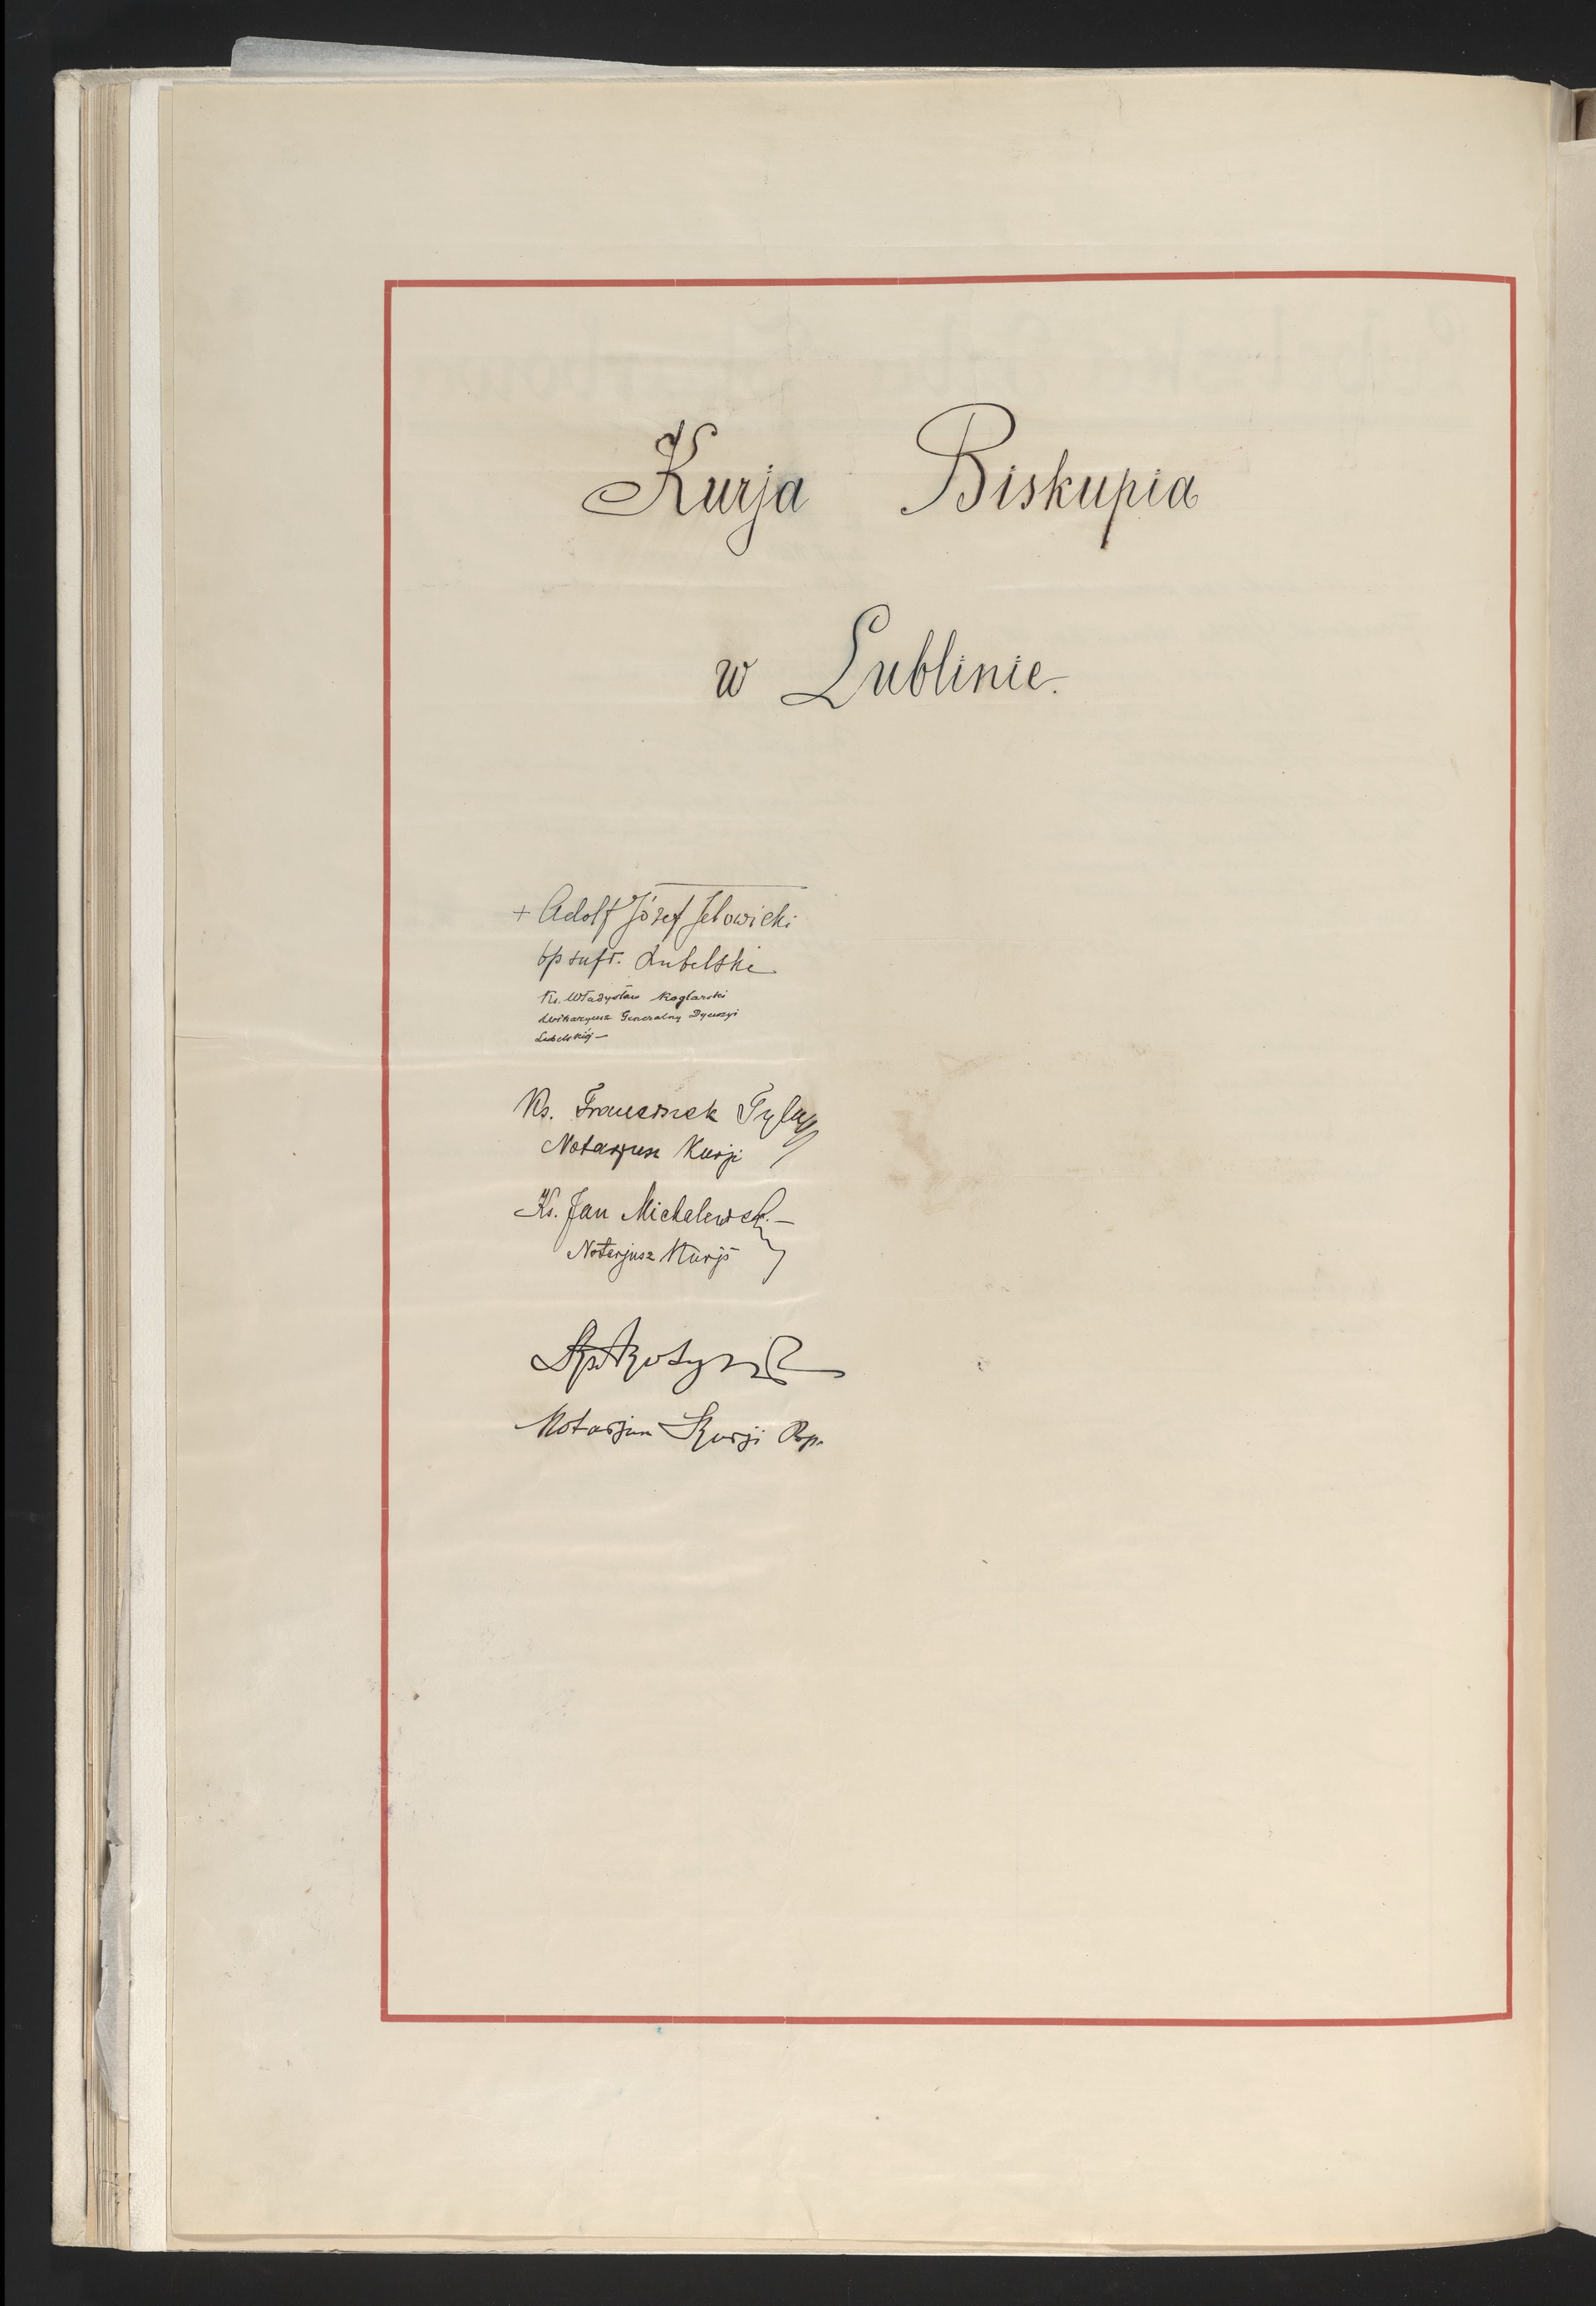 Kurja Biskupia
w Lublinie.
+ Adolf Józef Jełowicki
bp sufr. Lubelski
Ks. Władysław Koglarski
Wikaryusz Generalny Dyecezyi
Lubelskiej —
Ks. Franciszek Tylus
Notaryusz Kurji
Ks. Jan Michalewski —
Notarjusz Kurji
Notarjusz Kurji Bp.